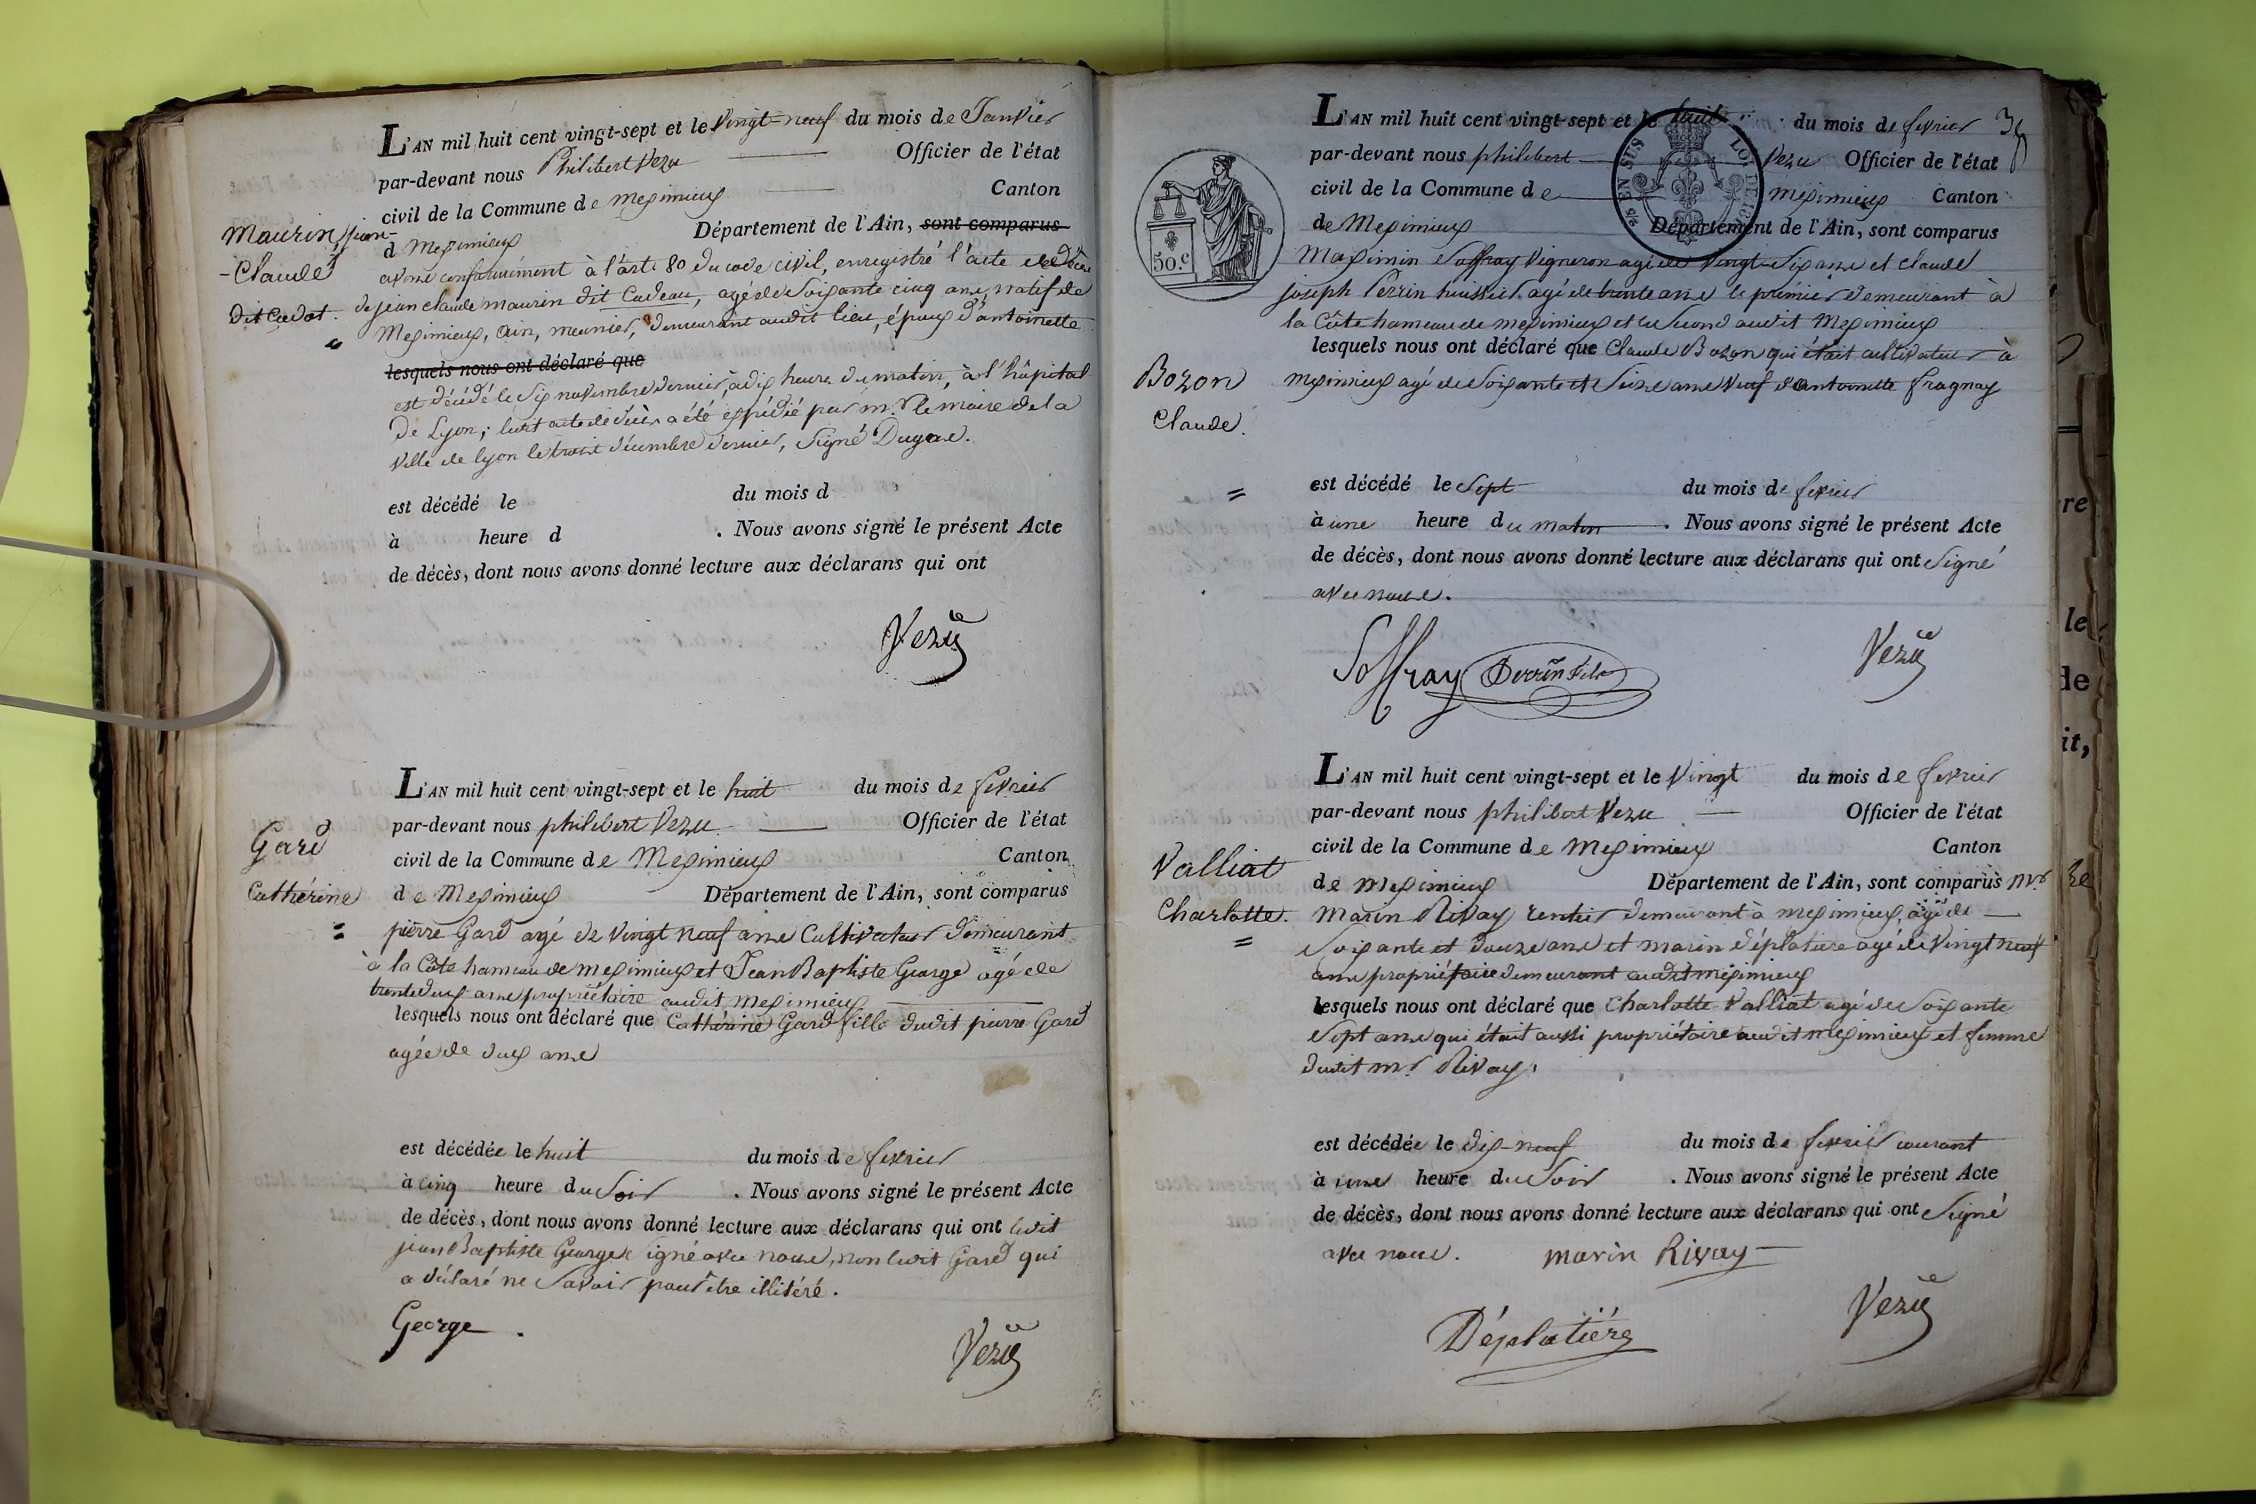 L'AN mil huit cent vingt-sept et le vingt-neuf du mois de Janvier
par-devant nous Philibert Vezu Officier de l'état
civil de la Commune de Meximieux Canton
d Meximieux Département de l'Ain, sont comparus
Maurin, jean-
-Claude
dit Cadot.
avons conformément à l'art. 80 du code civil, enregistré l'acte de décès
de jean claude maurin dit Cadeau, agé de Soixante cinq ans, natif de
Meximieux, ain, meunier, demeurant audit lieu, époux d'antoinette
lesquels nous ont déclaré que
est décédé le Six novembre dernier, à dix heures du matin, à l'hôpital
de Lyon; ledit acte de décès a été expédié par m.r le maire de la
ville de lyon le trois décembre dernier, Signé Dugas.
est décédé le du mois d
à heure d . Nous avons signé le présent Acte
de décès, dont nous avons donné lecture aux déclarans qui ont
Vezu
L'AN mil huit cent vingt-sept et le huit du mois de fevrier
par-devant nous philibert Vezu Officier de l'état
civil de la Commune de Meximieux Canton
de Meximieux Département de l'Ain, sont comparus
Gard
Cathérine
pierre Gard agé de vingt neuf ans Cultivateur demeurant
à la Côte hameau de meximieux et Jean Baptiste George agé de
trente deux ans propriétaire audit meximieux
lesquels nous ont déclaré que Cathérine Gard fille dudit pierre Gard
agée de deux ans
est décédée le huit du mois de fevrier
à cinq heure du Soir . Nous avons signé le présent Acte
de décès, dont nous avons donné lecture aux déclarans qui ont ledit
jean Baptiste George Signé avec nous, non ledit Gard qui
a déclaré ne Savoir pour être illitéré.
George
Vezu
L'AN mil huit cent vingt-sept et le huit du mois de fevrier
par-devant nous philibert Vezu Officier de l'état
civil de la Commune de meximieux Canton
de Meximieux Département de l'Ain, sont comparus
50.c
Maximin Soffray Vigneron agé de vingt-Six ans et Claude
joseph Perrin huissier agé de trente ans le prémier demeurant à
la Côte hameau de meximieux et le Second audit Meximieux
lesquels nous ont déclaré que Claude Bozon qui était cultivateur à
meximieux agé de Soixante et Seize ans Veuf d'antoinette fragnay
Bozon
Claude.
est décédé le Sept du mois de fevrier
à une heure du matin . Nous avons signé le présent Acte
de décès, dont nous avons donné lecture aux déclarans qui ont Signé
avec nous.
Soffray Perrin fils Vezu
L'AN mil huit cent vingt-sept et le Vingt du mois de fevrier
par-devant nous philibert Vezu Officier de l'état
civil de la Commune de Meximieux Canton
de Meximieux Département de l'Ain, sont comparus m.r
Valliat
Charlotte.
Marin Rivay rentier demeurant à meximieux, agé de
Soixante et douze ans et marin déplatière agé de Vingt neuf
ans propriétaire demeurant audit méximieux
lesquels nous ont déclaré que Charlotte Valliat agé de Soixante
Sept ans qui était aussi propriétaire audit meximieux et femme
dudit m.r Rivay.
est décédée le dix-neuf du mois de fevrier courant
à une heure du Soir . Nous avons signé le présent Acte
de décès, dont nous avons donné lecture aux déclarans qui ont Signé
avec nous. marin Rivay
Déplatière Vezu